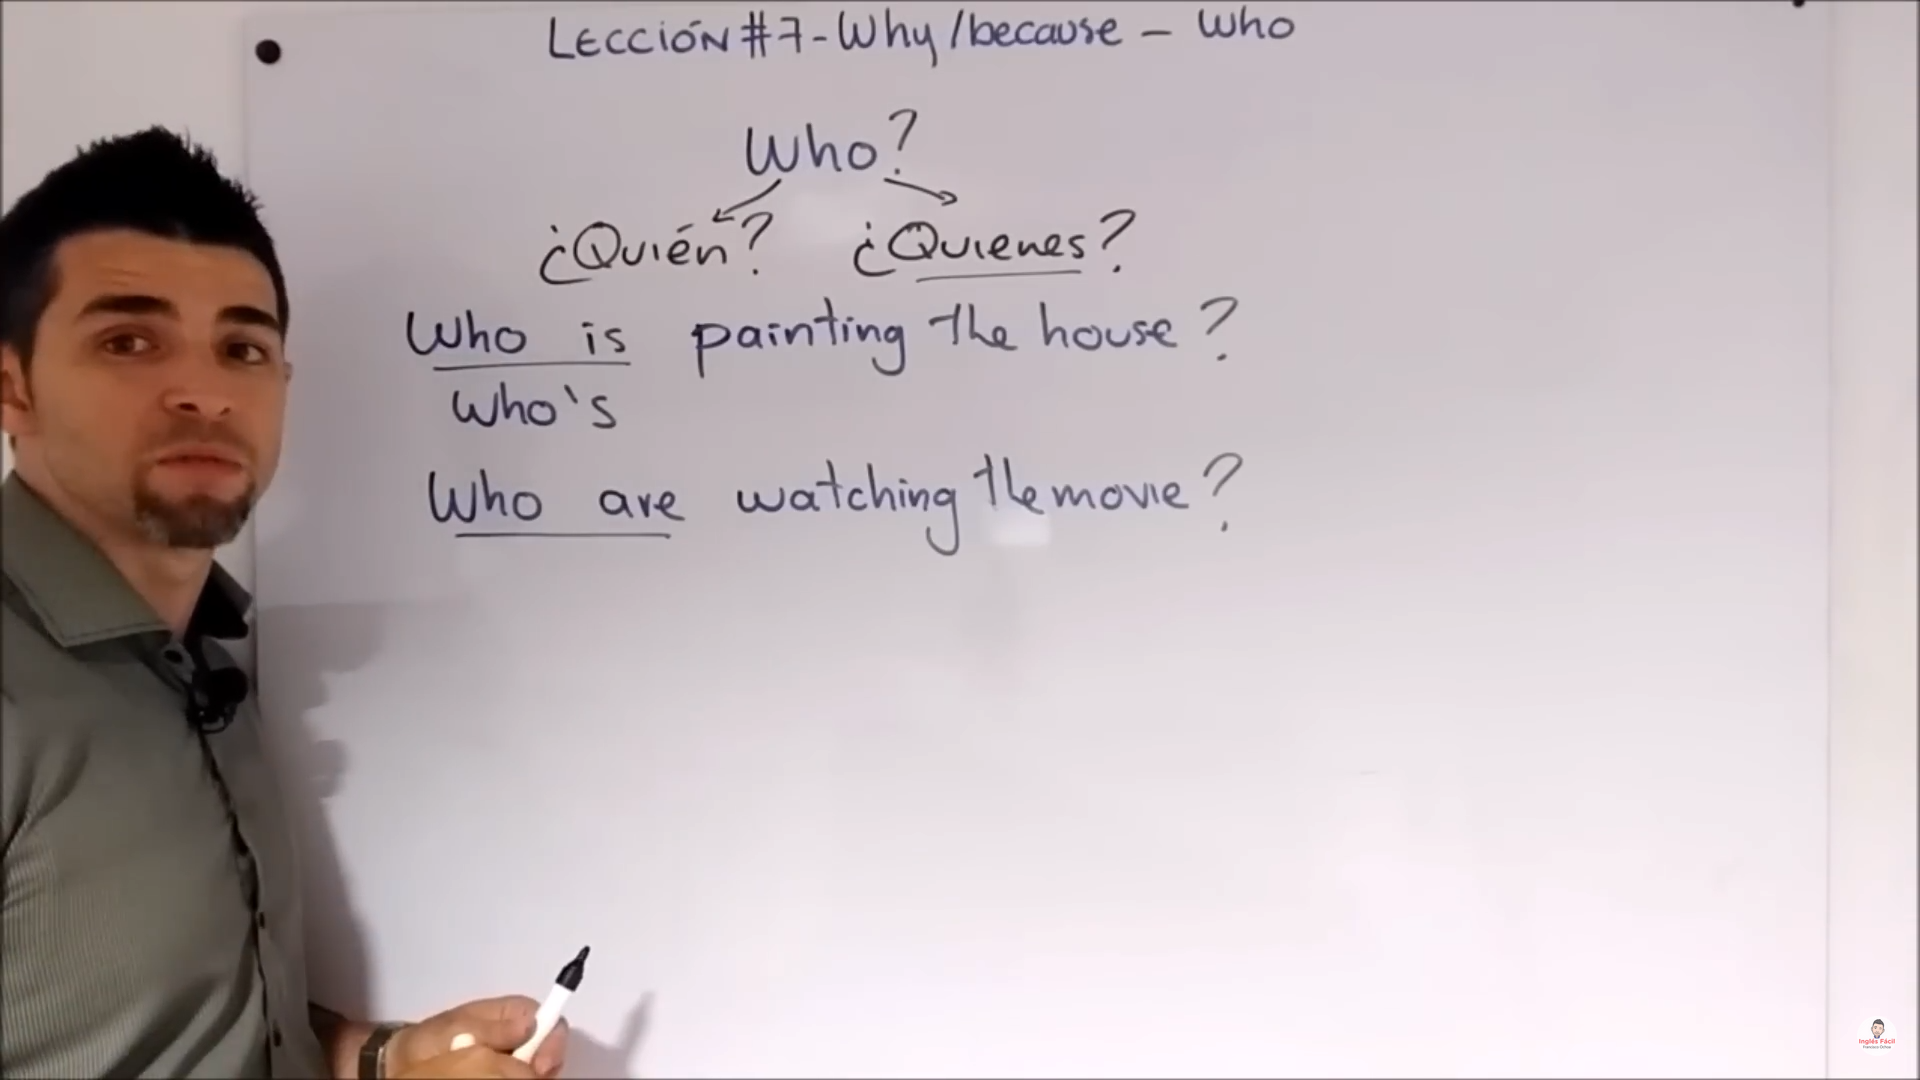 LECCIÓN #7 - Why / because - Who
Who?
¿Quién? ¿Quienes?
Who is painting the house?
Who's
Who are watching the movie?
Inglés Fácil
Francisco Ochoa